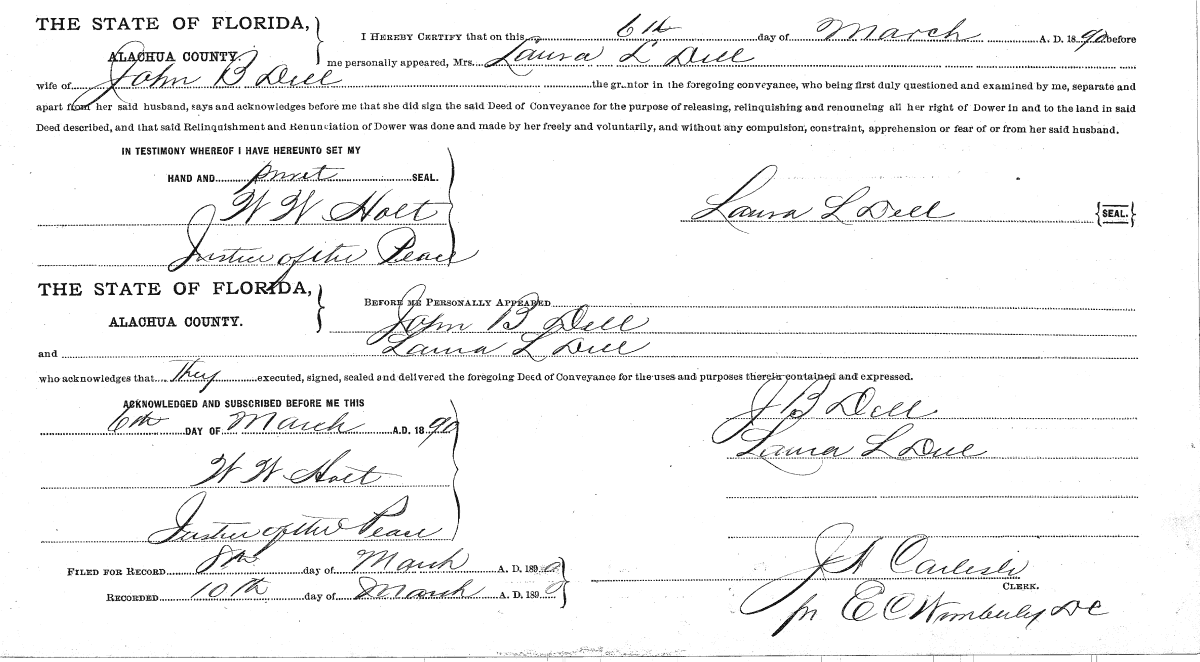 THE STATE OF FLORIDA,
ALACHUA COUNTY.
I HEREBY CERTIFY that on this 6th day of March A. D. 1890 before
me personally appeared, Mrs. Laura L Dell
wife of John B Dell the grantor in the foregoing conveyance, who being first duly questioned and examined by me, separate and
apart from her said husband, says and acknowledges before me that she did sign the said Deed of Conveyance for the purpose of releasing, relinquishing and renouncing all her right of Dower in and to the land in said
Deed described, and that said Relinquishment and Renunciation of Dower was done and made by her freely and voluntarily, and without any compulsion, constraint, apprehension or fear of or from her said husband.
IN TESTIMONY WHEREOF I HAVE HEREUNTO SET MY
HAND AND SEAL.
W W Holt
Laura L Dell {SEAL.}
Justice of the Peace
THE STATE OF FLORIDA,
ALACHUA COUNTY.
BEFORE ME PERSONALLY APPEARED
John B Dell
and Laura L Dell
who acknowledges that They executed, signed, sealed and delivered the foregoing Deed of Conveyance for the uses and purposes therein contained and expressed.
ACKNOWLEDGED AND SUBSCRIBED BEFORE ME THIS
6th DAY OF March A.D. 1890
J B Dell
Laura L Dell
W W Holt
Justice of the Peace
FILED FOR RECORD 8th day of March A. D. 1890
RECORDED 10th day of March A. D. 1890
J A Carlisle
CLERK.
pr E C Wimberly DC